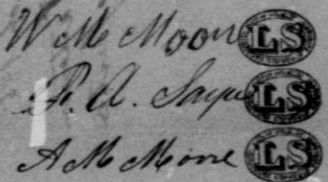 W M Moore LS
P. A. Sayre LS
A M Moore LS